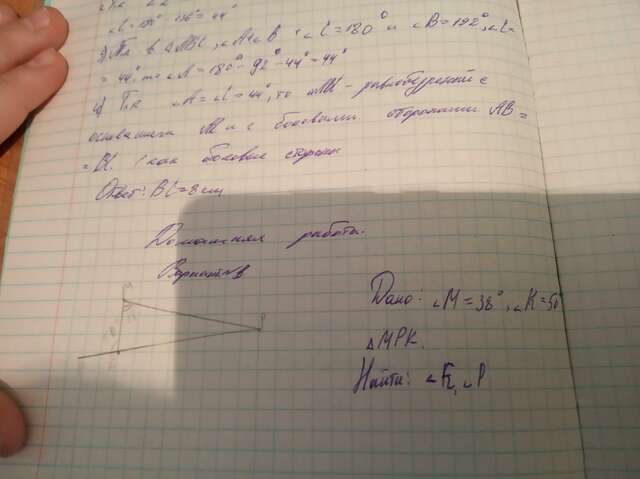 ∠C=180°-136°=44°
3) Т.к в ΔABC, ∠A+∠B+∠C=180° и ∠B=92°, ∠C=
=44°, то ∠A=180°-92°-44°=44°
4) Т.к ∠A=∠C=44°, то равнобедренный с
основанием AC и с боковыми сторонами AB=
=BC. как боковые стороны
Ответ: BC=8см
Домашняя работа.
Вариант
Дано: ∠M=38°, ∠K=50°
ΔMPK.
P
Найти: ∠P